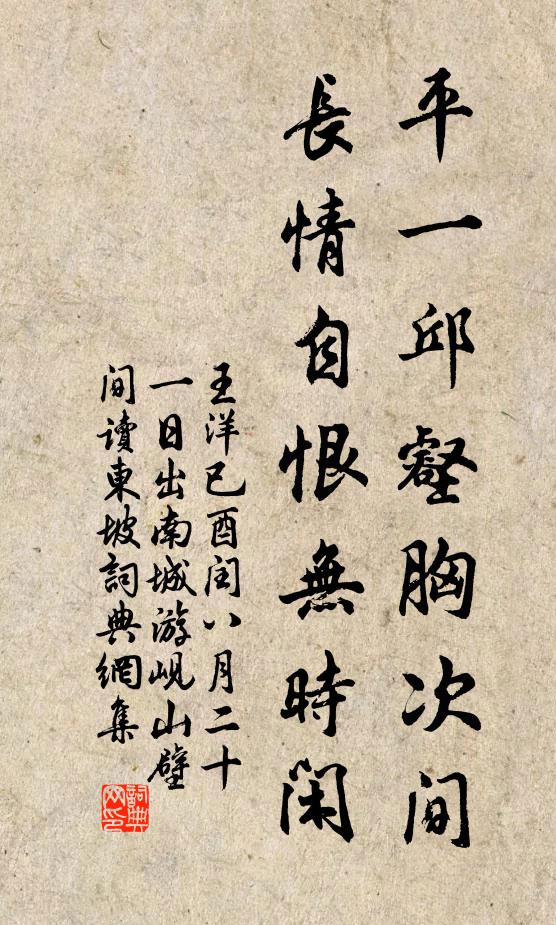 平一邱壑胸次間
長情自恨無時閑
王洋已酉閏八月二十
一日出南城游峴山壁
間讀東坡詞典網集
詞典網印